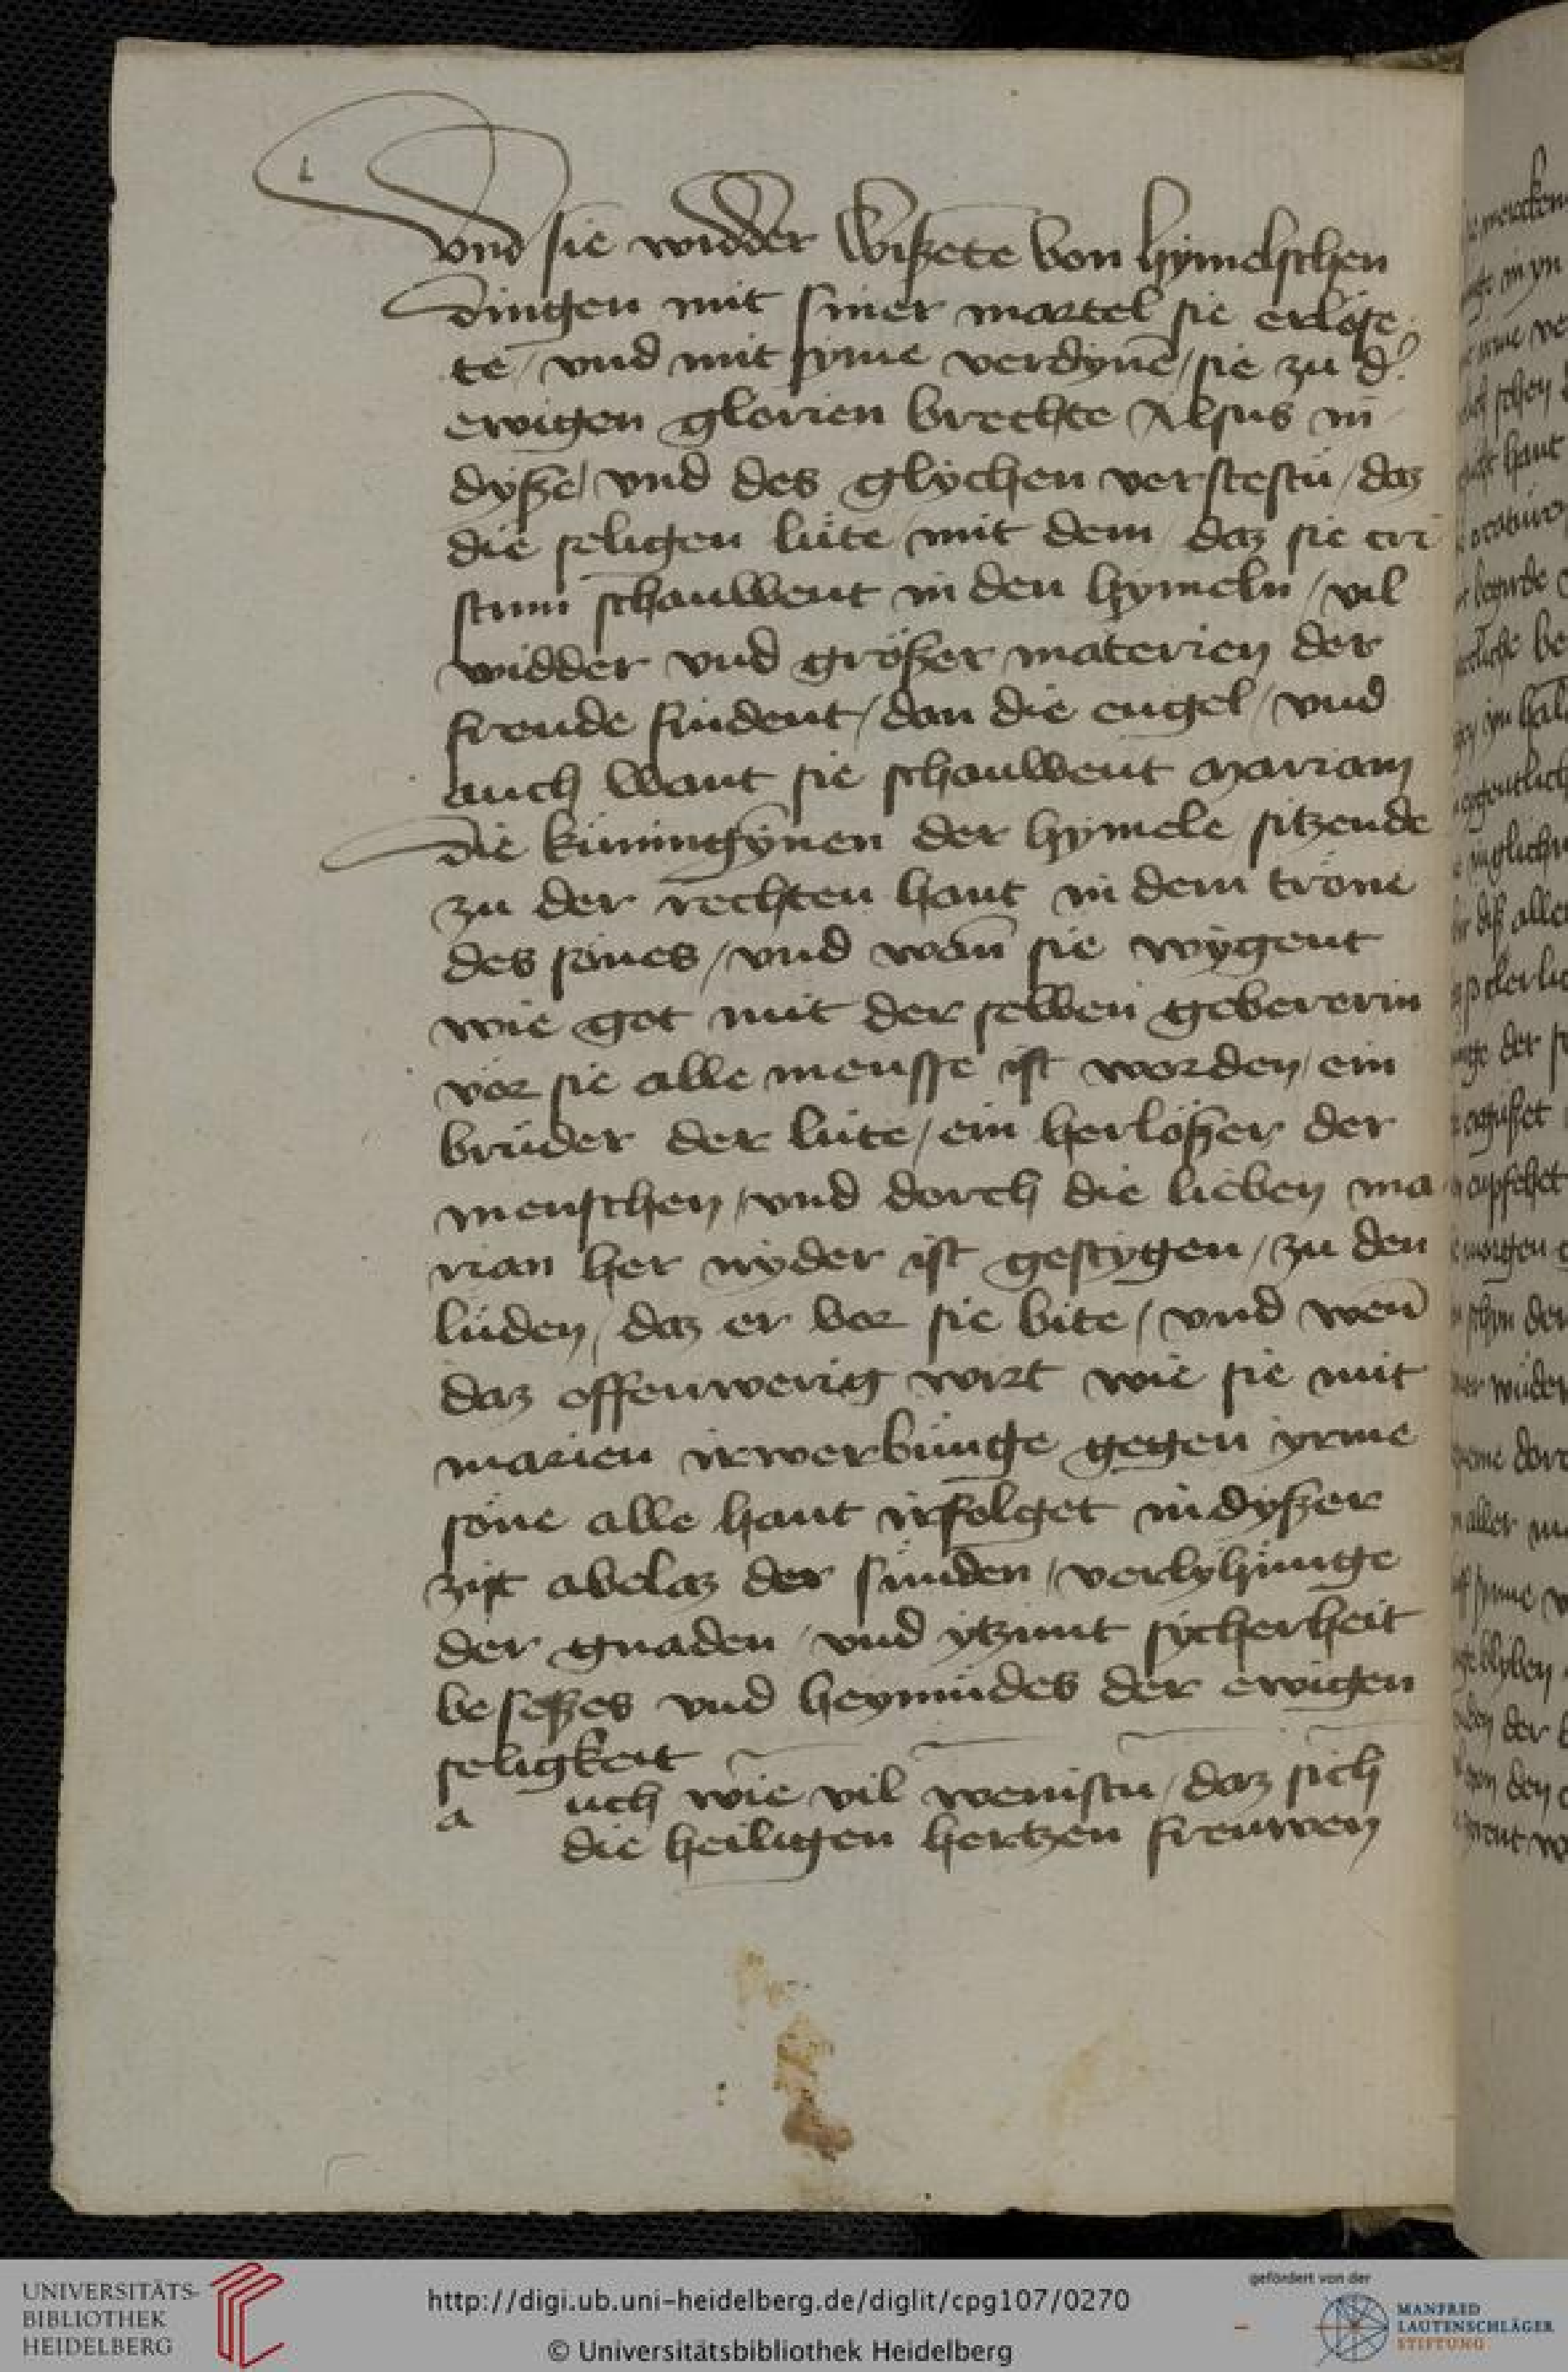 vnd sie widder wißete von hymelschen
dingen mit siner martel sie erlöse
te / vnd mit syme verdynē / sie zu d'
ewigen glorien brechte Alsus in
dyße / vnd des glychen verstestu / daz
die seligen lüte mit dem daz sie cri
stum schauwent in den hymeln / vil
widder vnd größer materien der
freude findent / dan die engel / vnd
auch want sie schauwent mariam
die küningȳnen der hymele sitzende
zu der rechten hant in dem trone
des sones / vnd wan̄ sie wygent
wie got mit der selben gebererin
vor sie alle mensse ist worden / ein
bruder der lüte / ein herlößer der
menschen / vnd dorch die lieben ma
rian her nyder ist gestygen / zu den
lüden / daz er vor sie bite / vnd wen̄
daz offenwerig wirt wie sie mit
marien irwerbunge gegen yrme
sone alle hant irfolget in dyßer
zijt abelaz der sünden / verlyhunge
der gnaden / vnd ytzunt sycherheit
beseßes vnd heymüdes der ewigen
seligkeit
a uch wie vil wenistu / daz sich
die heiligen hertzen freuwen
UNIVERSITÄTS-
BIBLIOTHEK
HEIDELBERG
http://digi.ub.uni-heidelberg.de/diglit/cpg107/0270
© Universitätsbibliothek Heidelberg
gefördert von der
MANFRED
LAUTENSCHLÄGER
STIFTUNG